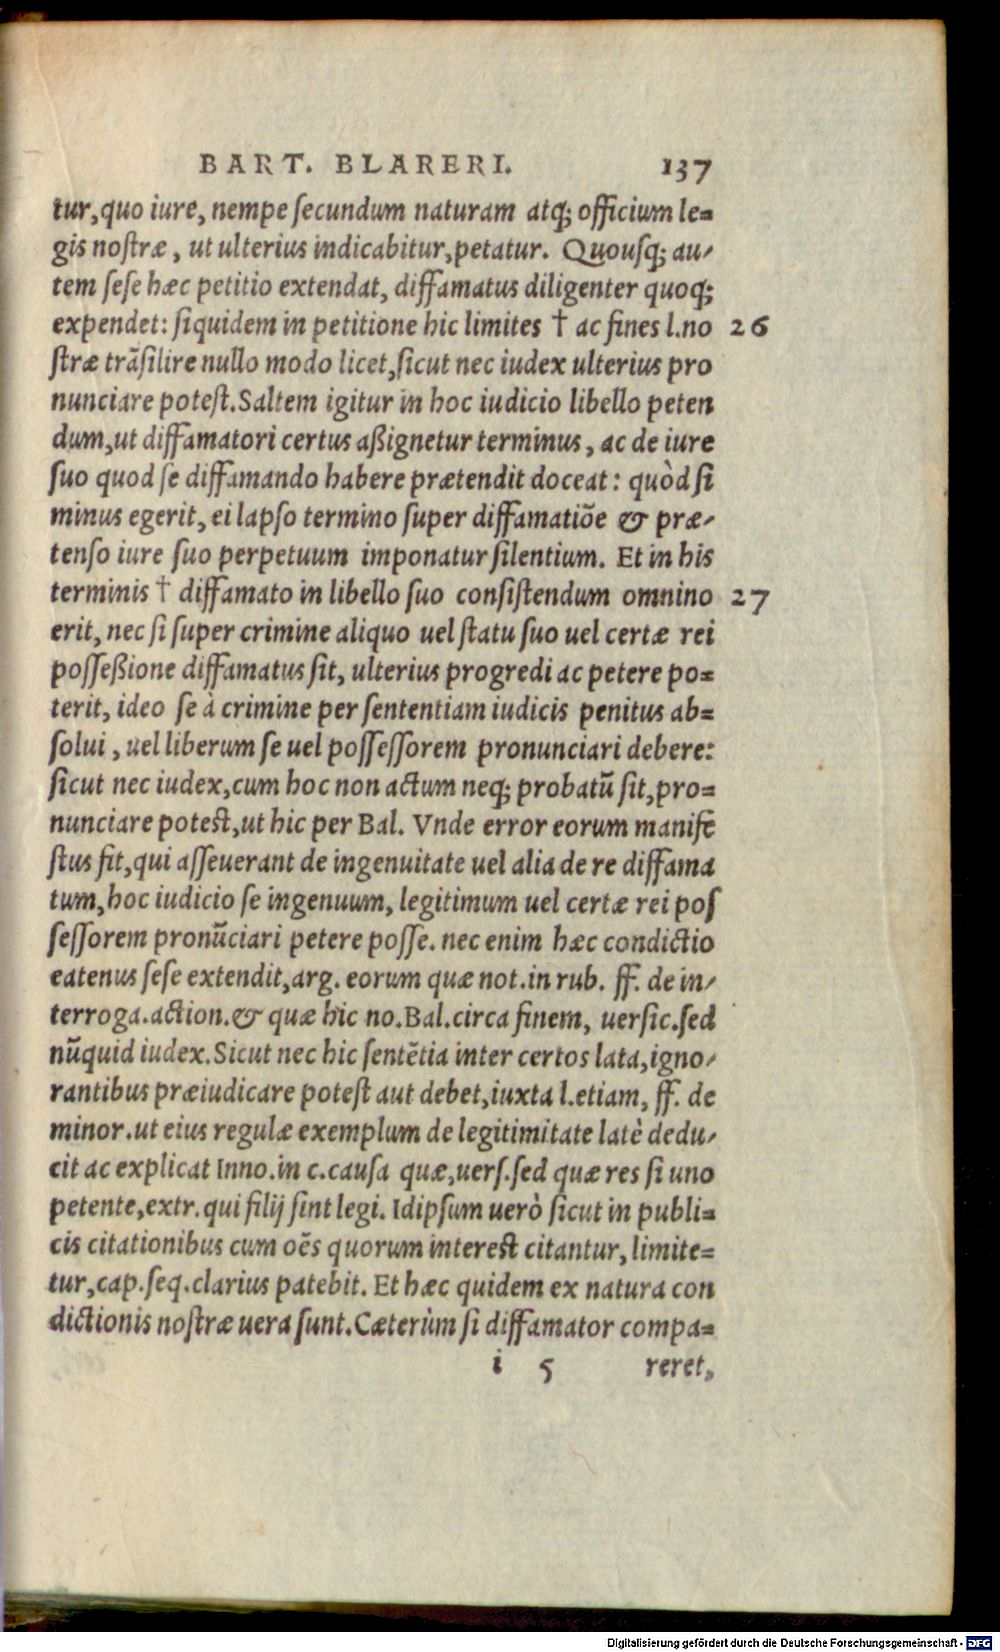 BART. BLARERI. 137
tur, quo iure, nempe ſecundum naturam atq; officium le=
gis noſtræ, ut ulterius indicabitur, petatur. Quouſq; au-
tem ſeſe hæc petitio extendat, diffamatus diligenter quoq;
expendet: ſiquidem in petitione hic limites † ac fines l. no 26
ſtræ trãſilire nullo modo licet, ſicut nec iudex ulterius pro
nunciare poteſt. Saltem igitur in hoc iudicio libello peten
dum, ut diffamatori certus aßignetur terminus, ac de iure
ſuo quod ſe diffamando habere prætendit doceat: quòd ſi
minus egerit, ei lapſo termino ſuper diffamatiõe & præ-
tenſo iure ſuo perpetuum imponatur ſilentium. Et in his
terminis † diffamato in libello ſuo conſiſtendum omnino 27
erit, nec ſi ſuper crimine aliquo uel ſtatu ſuo uel certæ rei
poſſeßione diffamatus ſit, ulterius progredi ac petere po=
terit, ideo ſe à crimine per ſententiam iudicis penitus ab=
ſolui, uel liberum ſe uel poſſeſſorem pronunciari debere:
ſicut nec iudex, cum hoc non actum neq; probatũ ſit, pro=
nunciare poteſt, ut hic per Bal. Vnde error eorum manife
ſtus fit, qui aſſeuerant de ingenuitate uel alia de re diffama
tum, hoc iudicio ſe ingenuum, legitimum uel certæ rei poſ
ſeſſorem pronũciari petere poſſe. nec enim hæc condictio
eatenus ſeſe extendit, arg. eorum quæ not. in rub. ff. de in-
terroga. action. & quæ hic no. Bal. circa finem, uerſic. ſed
nũquid iudex. Sicut nec hic ſentẽtia inter certos lata, igno-
rantibus præiudicare poteſt aut debet, iuxta l. etiam, ff. de
minor. ut eius regulæ exemplum de legitimitate latè dedu-
cit ac explicat Inno. in c. cauſa quæ, uerſ. ſed quæ res ſi uno
petente, extr. qui filij ſint legi. Idipſum uerò ſicut in publi=
cis citationibus cum oẽs quorum intereſt citantur, limite=
tur, cap. ſeq. clarius patebit. Et hæc quidem ex natura con
dictionis noſtræ uera ſunt. Cæterùm ſi diffamator compa=
i 5 reret,
Digitalisierung gefördert durch die Deutsche Forschungsgemeinschaft - DFG